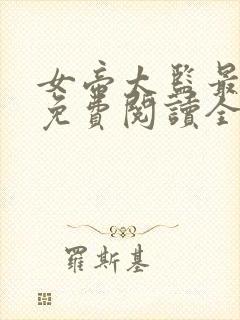 女帝大監最
免費閱讀全
羅斯基